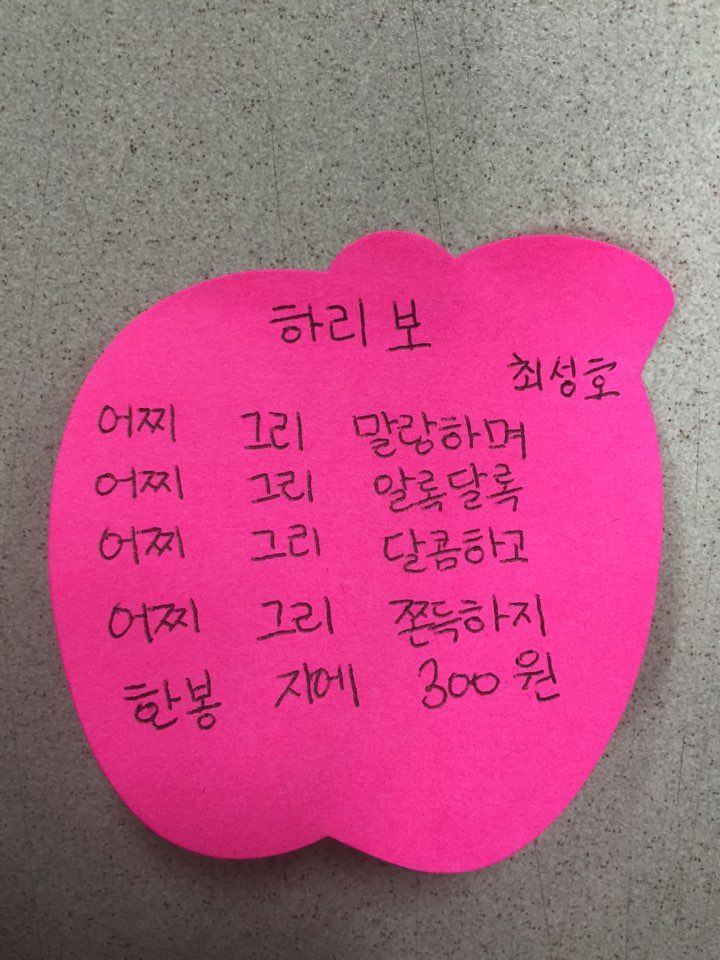 하리보
최성호
어찌 그리 말랑하며
어찌 그리 알록달록
어찌 그리 달콤하고
어찌 그리 쫀득하지
한봉 지에 300원